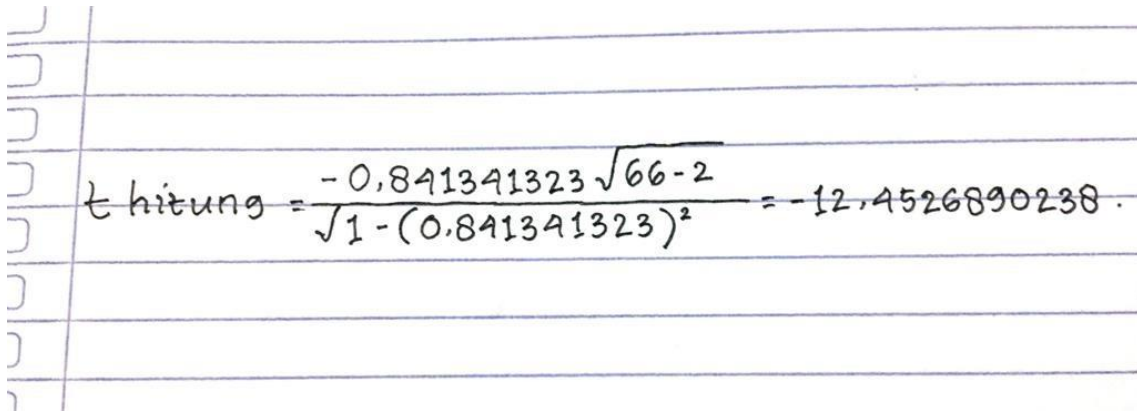 t hitung = -0,841341323 √66-2 / √1-(0.841341323)² = -12,4526890238.